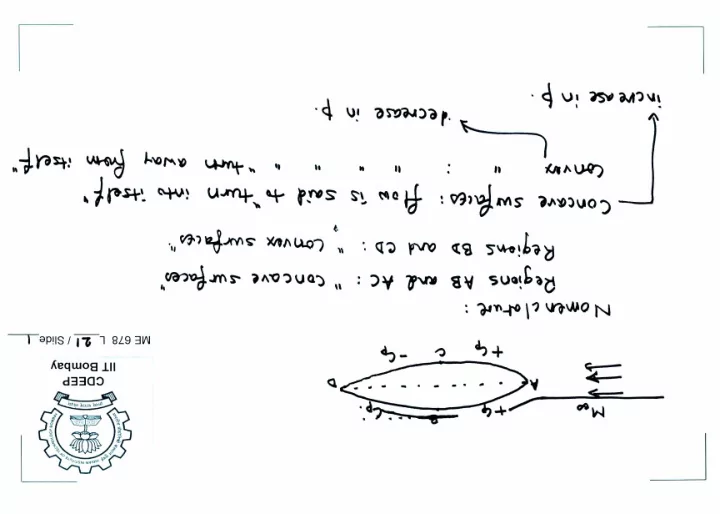 M∞
+Cp
B
-Cp
A
D
+Cp
C
-Cp
CDEEP
IIT Bombay
ME 678 L 21 / Slide 1
Nomenclature :
Regions AB and AC : "concave surfaces"
Regions BD and CD : "convex surfaces"
Concave surfaces : flow is said to "turn into itself"
Convex " : " " " " "turn away from itself"
decrease in p.
increase in p.